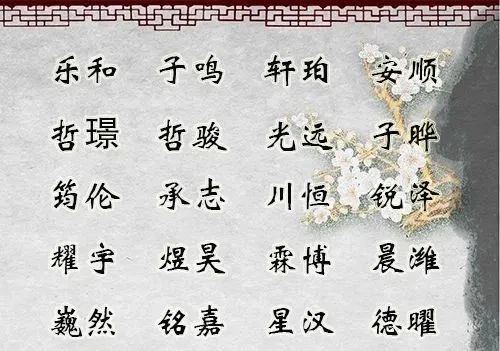 乐和 子鸣 轩珀 安顺
哲璟 哲骏 光远 子晔
筠伦 承志 川恒 锐泽
耀宇 煜昊 霖博 晨潍
巍然 铭嘉 星汉 德曜